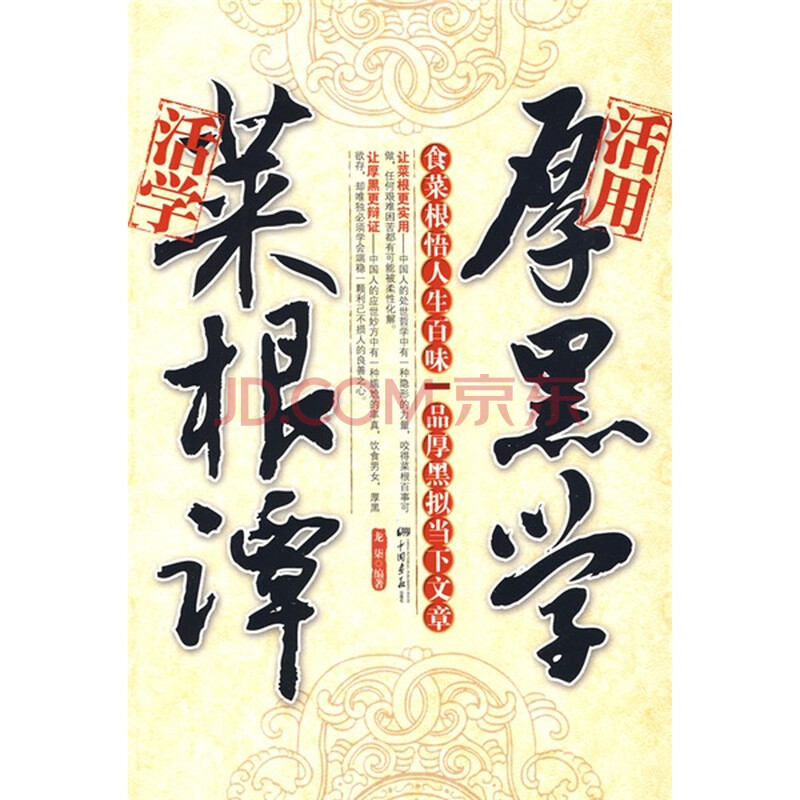 活学
菜根谭
活用
厚黑学
食菜根悟人生百味
品厚黑拟当下文章
让菜根更实用——中国人的处世哲学中有一种隐形的力量，咬得菜根百事可
做，任何艰难困苦都有可能被柔性化解。
让厚黑更辩证——中国人的应世妙方中有一种尴尬的率真，饮食男女，厚黑
欲存，却唯独必须学会端稳一颗利己不损人的良善之心。
龙柒◎编著
中国画报
出版社
JD.COM 京东